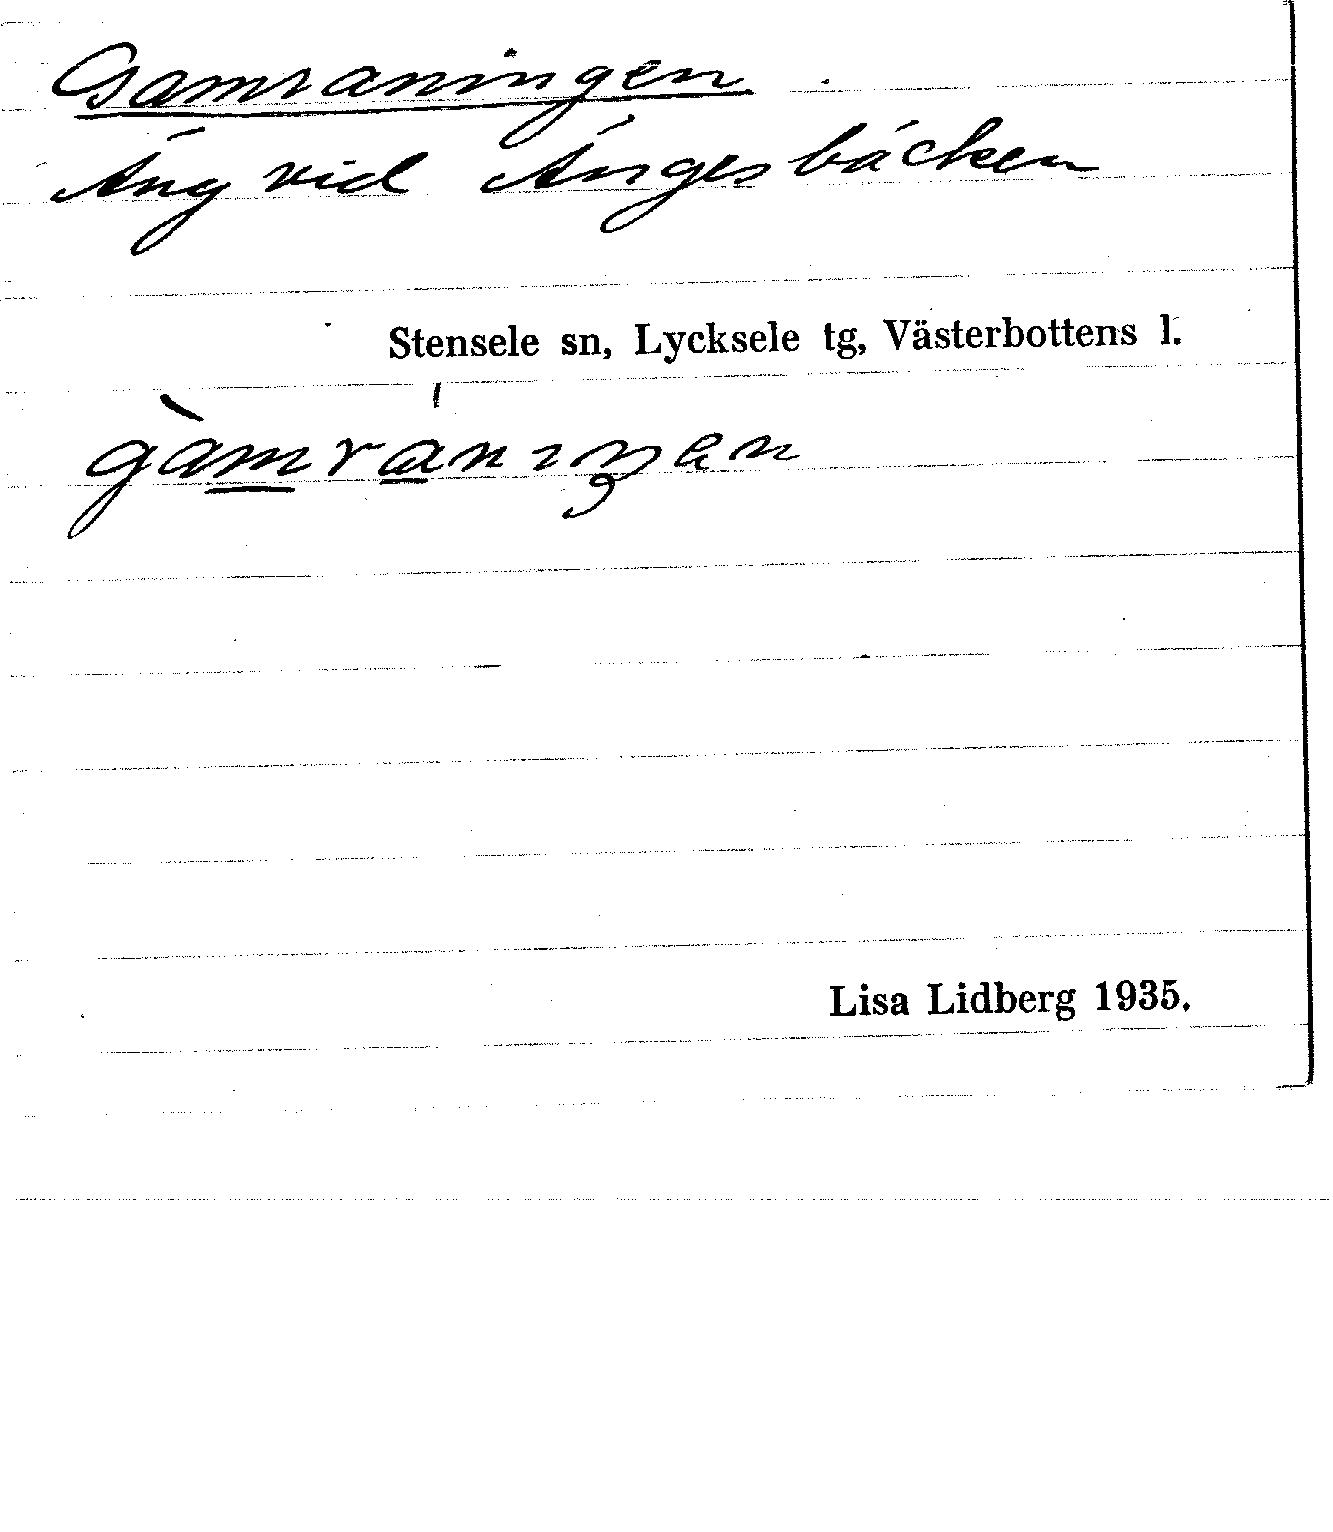 Gamraningen
Äng vid Ängesbäcken
Stensele sn, Lycksele tg, Västerbottens l.
gàmránıŋen
Lisa Lidberg 1935.